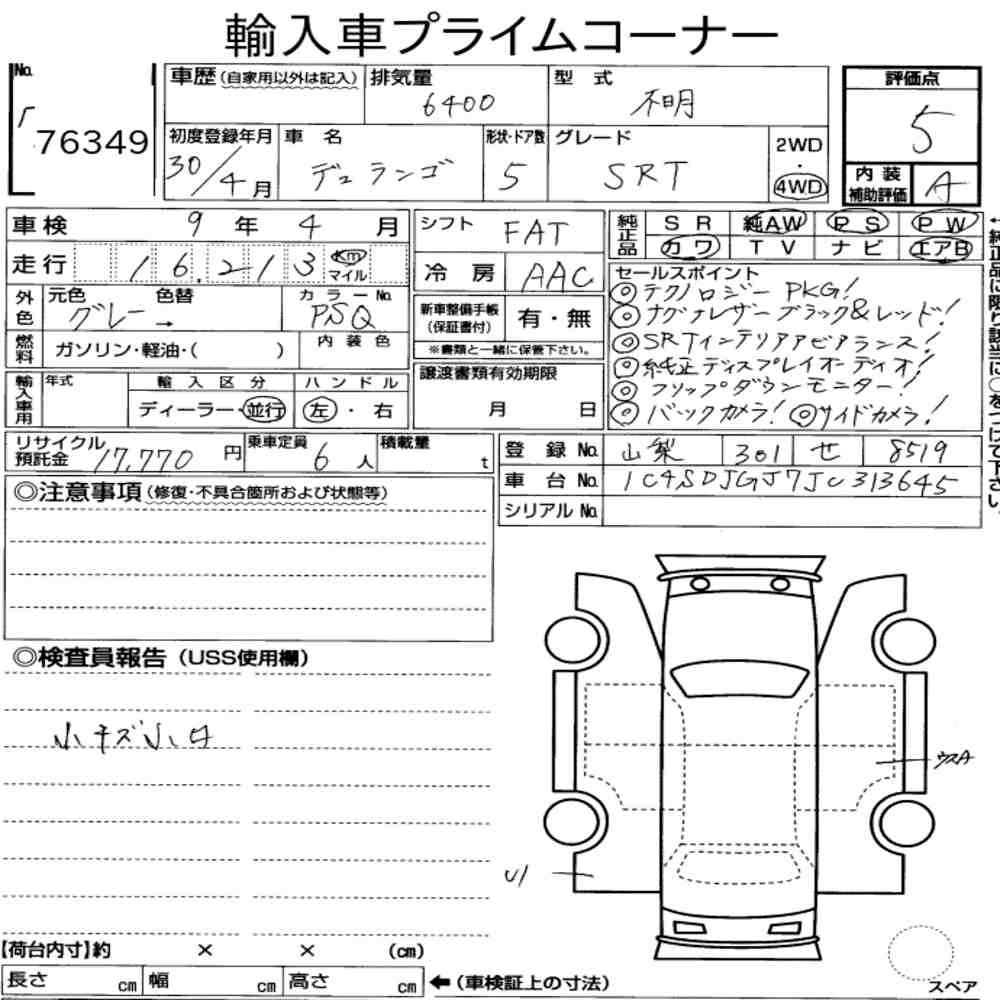 輸入車プライムコーナー
No. 76349
車歴(自家用以外は記入)
排気量 6400
型式 不明
評価点 5
初度登録年月 30/4月
車名 デュランゴ
形状・ドア数 5
グレード SRT
2WD・4WD
内装補助評価 A
車検 9年 4月
走行 16,213 Km マイル
シフト FAT
冷房 AAC
純正品 SR 純AW PS PW
カワ TV ナビ エアB
←純正品に限り該当に○をつけて下さい。
外色 元色 色替 グレー→
カラーNo. PSQ
内装色
燃料 ガソリン・軽油・( )
新車整備手帳(保証書付) 有・無
※書類と一緒に保管下さい。
セールスポイント
◎テクノロジー PKG!
◎ナグナレザー ブラック&レッド!
◎SRTインテリアアピアランス!
◎純正ディスプレイオーディオ!
◎フリップダウンモニター!
◎バックカメラ! ◎サイドカメラ!
輸入車用 年式
輸入区分 ディーラー・並行
ハンドル 左・右
譲渡書類有効期限
月 日
リサイクル預託金 17,770円
乗車定員 6人
積載量 t
登録No. 山梨 301 せ 8519
車台No. 1C4SDJGJ7JC313645
シリアルNo.
◎注意事項(修復・不具合箇所および状態等)
◎検査員報告(USS使用欄)
小キズ小凹
ウスA
U1
【荷台内寸】約 × × (cm)
長さ cm 幅 cm 高さ cm ←(車検証上の寸法)
スペア